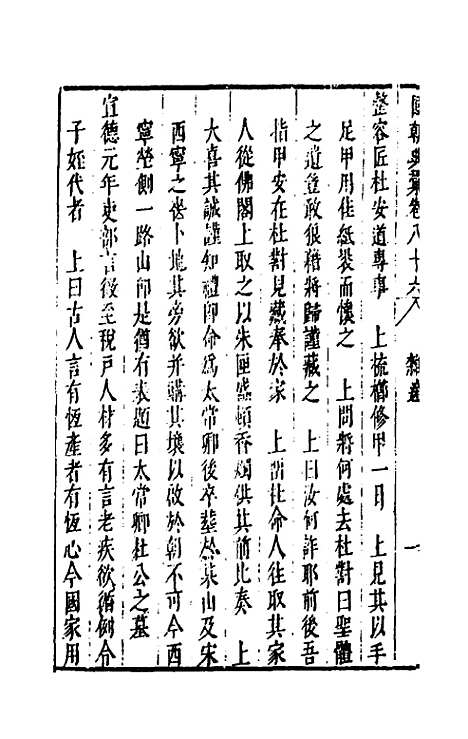 國朝典彙卷八十六 雜造 一
整容匠杜安道專事 上梳櫛修甲一日 上見其以手
足甲用佳紙裂而懷之 上問將何處去杜對曰聖體
之遺豈敢狼藉將歸謹藏之 上曰汝何詐耶前後吾
指甲安在杜對見藏奉於家 上留杜命人往取其家
人從佛閣上取之以朱匣盛頓香燭供其前比奏 上
大喜其誠謹知禮即命為太常卿後卒葬於某山及宋
西寧之喪卜地其旁欲并購其壤以啟於朝不可今西
寧塋創一路山即是猶有表題曰太常卿杜公之墓
宣德元年吏部言後至稅戶人材多有言老疾欲循例令
子姪代者 上曰古人言有恆產者有恆心今國家用